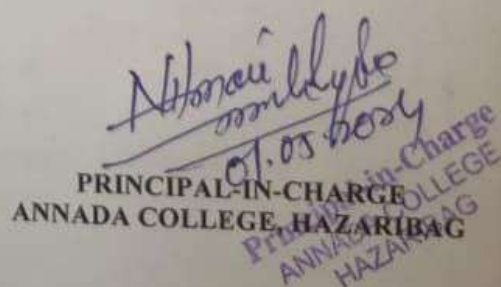 01.05.2024
PRINCIPAL-IN-CHARGE
ANNADA COLLEGE, HAZARIBAG
Principal-in-Charge
ANNADA COLLEGE
HAZARIBAG